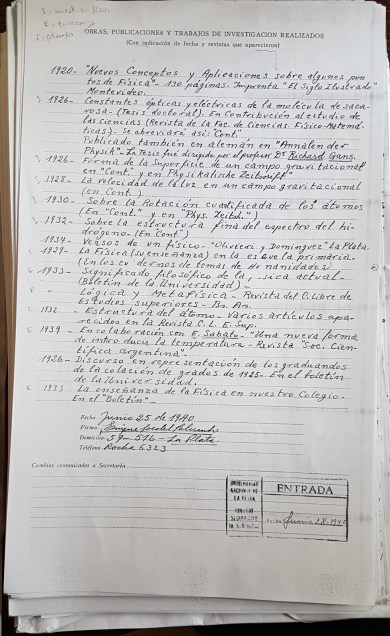 OBRAS, PUBLICACIONES Y TRABAJOS DE INVESTIGACION REALIZADOS
(Con indicación de fecha y revistas que aparecieron)
1920- "Nuevos Conceptos y Aplicaciones sobre algunos pun
tos de Física"- 130 páginas. Imprenta "El Siglo Ilustrado"
Montevideo.
1926- Constantes ópticas y eléctricas de la molécula de saca-
rosa- (Tesis doctoral). En Contribución al estudio de
las ciencias (Revista de la Fac. de Ciencias Físico-Matemá-
ticas). Se abreviará así: "Cont."
Publicado también en alemán en "Annalen der
Physik"- La Tesis fué dirigida por el profesor Dr. Richard Gans.
1926- Forma de la superficie de un campo gravitacional
en "Cont." y en Physikalische Zeitschrift"
1928- La velocidad de la luz en un campo gravitacional
(en Cont.)
1930- Sobre la Rotación cuantificada de los átomos
(En "Cont." y en "Phys. Zeitch.")
1932- Sobre la estructura fina del espectro del hi-
drógeno. (en Cont.)
1934- Versos de un físico- "Olivieri y Dominguez" La Plata.
1929- La Física (su enseñanza) en la escuela primaria-
(En los cuadernos de temas de Humanidades)
1933- Significado filosófico de la física actual-
(Boletín de la Universidad)-
" Lógica y Metafísica- Revista del C. Libre de
Estudios superiores- Bs. An.
1932 - Estructura del átomo- Varios artículos apa-
recidos en la Revista C. L. E. Sup.
1939 - En colaboración con E. Sábato- "Una nueva forma
de introducir la temperatura- Revista Soc. Cien-
tífica argentina"-
1926- Discurso en representación de los graduandos
de la colación de grados de 1925- En el Boletín
de la Universidad.
1933 La enseñanza de la Física en nuestro Colegio-
En el "Boletín"-
Fecha Junio 25 de 1940
Firma
Domicilio 59-516- La Plata
Teléfono Rocha 5323
Cambios comunicados a Secretaría
UNIVERSIDAD
NACIONAL DE
LA PLATA
ENTRADA
FECHA Junio 28-1940